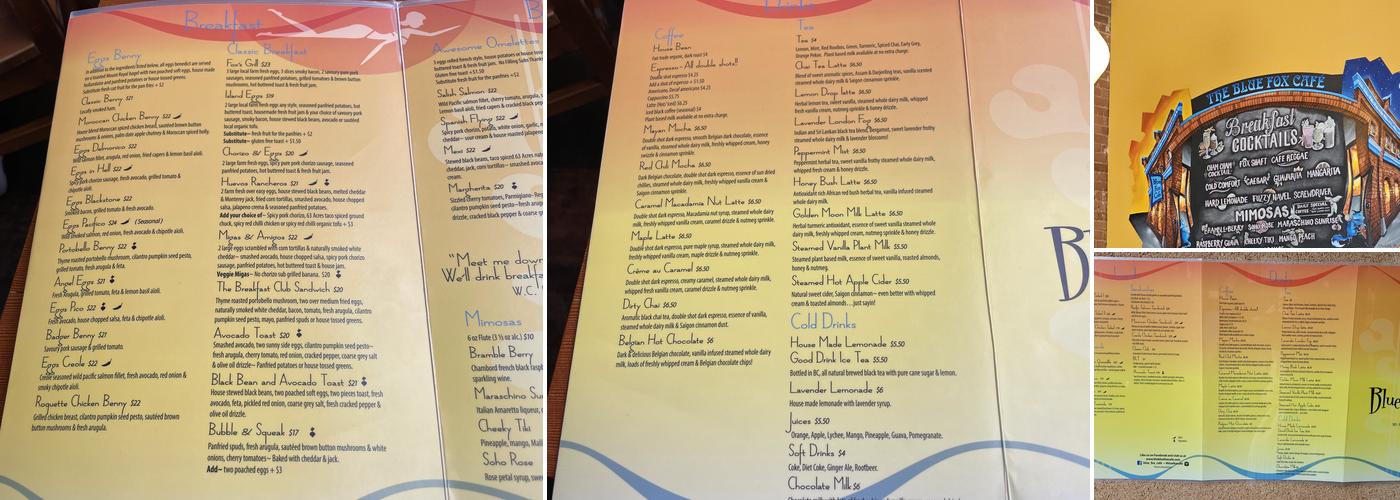 Breakfast
Eggs Benny
In addition to the ingredients listed below, all eggs benedict are served
on a toasted Mount Royal bagel with two poached soft eggs, house made
hollandaise and panfried potatoes or house tossed greens.
Substitute fresh cut fruit for the pan fries + $2
Classic Benny $21
Locally smoked ham.
Moroccan Chicken Benny $22
House blend Moroccan spiced chicken breast, sautéed brown button
mushrooms & onions, palm date apple chutney & Moroccan spiced holly.
Eggs Delmonico $22
Wild salmon fillet, arugula, red onion, fried capers & lemon basil aioli.
Eggs in Hall $22
Spicy pork chorizo sausage, fresh avocado, grilled tomato &
chipotle aioli.
Eggs Blackstone $22
Smoked bacon, grilled tomato & fresh avocado.
Eggs Pacifico $24 (Seasonal)
Wild smoked salmon, red onion, fresh avocado & chipotle aioli.
Portobello Benny $22
Thyme roasted portobello mushroom, cilantro pumpkin seed pesto,
grilled tomato, fresh arugula & feta.
Angel Eggs $21
Fresh Arugula, grilled tomato, feta & lemon basil aioli.
Eggs Pico $22
Fresh avocado, house chopped salsa, feta & chipotle aioli.
Badger Benny $21
Savoury pork sausage & grilled tomato.
Eggs Creole $22
Creole seasoned wild pacific salmon fillet, fresh avocado, red onion &
smoky chipotle aioli.
Roquette Chicken Benny $22
Grilled chicken breast, cilantro pumpkin seed pesto, sautéed brown
button mushrooms & fresh arugula.
Classic Breakfast
Fox's Grill $23
3 large local farm fresh eggs, 3 slices smoky bacon, 2 savoury pure pork
sausages, seasoned panfried potatoes, grilled tomatoes & brown button
mushrooms, buttered toast & fresh fruit jam.
Island Eggs $19
2 large local farm fresh eggs any style, seasoned panfried potatoes, hot
buttered toast, homemade fresh fruit jam & your choice of savoury pork
sausage, smoky bacon, house stewed black beans, avocado or sautéed
local organic tofu.
Substitute~ fresh fruit for the panfries + $2
Substitute~ gluten free toast + $1.50
Chorizo & Eggs $20
2 large farm fresh eggs, spicy pure pork chorizo sausage, seasoned
panfried potatoes, hot buttered toast & fresh fruit jam.
Huevos Rancheros $21
2 farm fresh eggs, house stewed black beans, melted cheddar
& Monterey jack, fried corn tortillas, smashed avocado, house chopped
salsa, jalapeno crema & seasoned panfried potatoes.
Add your choice of~ Spicy pork chorizo, 63 Acres taco spiced ground
chuck, spicy red chilli chicken or spicy red chilli organic tofu + $3
Migas & Amigos $22
2 large eggs scrambled with corn tortillas & naturally smoked white
cheddar~ smashed avocado, house chopped salsa, spicy pork chorizo
sausage, panfried potatoes, hot buttered toast & house jam.
Veggie Migas~ No chorizo sub grilled banana. $20
The Breakfast Club Sandwich $20
Thyme roasted portobello mushroom, two over medium fried eggs,
naturally smoked white cheddar, bacon, tomato, onion, cilantro pumpkin
seed pesto, mayo, panfried spuds or house tossed greens.
Avocado Toast $20
Smashed avocado, two sunny side eggs, cilantro pumpkin seed pesto~
fresh arugula, cherry tomato, red onion, cracked pepper, coarse grey salt
& olive oil drizzle~ Panfried potatoes or house tossed greens.
Black Bean and Avocado Toast $21
House stewed black beans, two poached soft eggs, two pieces toast, fresh
avocado, feta, pickled red onion, coarse grey salt, fresh cracked pepper &
olive oil drizzle.
Bubble & Squeak $17
Panfried spuds, fresh arugula, sautéed brown button mushrooms & white
onions, cherry tomatoes~ Baked with cheddar & jack.
Add~ two poached eggs + $3
Awesome Omelettes
3 eggs rolled french style, house potatoes or house
buttered toast & fresh fruit jam. No Filling Subs Thanks
Gluten free toast +$1.50
Substitute fresh fruit for the panfries +$2
Salish Salmon $22
Wild Pacific salmon fillet, cherry tomatoes,
Lemon basil aioli, fried capers & cracked black pe
Spanish Flying $22
Spicy pork chorizo, potato, white onion, garlic,
cheddar~ sour cream & house roasted jalapeno
Mexi $22
Stewed black beans, taco spiced 63 Acres
jack, corn tortillas~ smashed avocado,
cream.
Margherita $20
Sizzled cherry tomatoes, Parmigiano~
cilantro pumpkin seed pesto~fresh
drizzle, cracked black pepper & coarse
"Meet me down
We'll drink breakfa
W.C.
Mimosas
6 oz Flute (3 ½ oz alc.) $10
Bramble Berry
Chambord french black rasp
sparkling wine.
Maraschino Su
Italian Amaretto liqueur,
Cheeky Tiki
Pineapple, mango, Mali
Soho Rose
Rose petal syrup, swe
Drinks
Coffee
House Bean
Fair trade organic, dark roast $4
Espresso~ All double shots!!
Double shot espresso $4.25
Add a shot of espresso + $1.50
Americano, Decaf Americano $4.25
Cappuccino $5.75
Latte (Hot/ Iced) $6.25
Iced black coffee (seasonal) $4
Plant based milk available at no extra charge.
Mayan Mocha $6.50
Double shot espresso, smooth Belgian dark chocolate, essence
of vanilla, steamed whole dairy milk, freshly whipped cream, honey
swizzle & cinnamon sprinkle.
Red Chili Mocha $6.50
Dark Belgian chocolate, double shot dark espresso, essence of sun dried
chillies, steamed whole dairy milk, freshly whipped cream &
Saigon cinnamon sprinkle.
Caramel Macadamia Nut Latte $6.50
Double shot dark espresso, Macadamia nut syrup, steamed whole dairy
milk, freshly whipped vanilla cream, caramel drizzle & nutmeg sprinkle.
Maple Latte $6.50
Double shot dark espresso, pure maple syrup, steamed whole dairy
milk, freshly whipped vanilla cream, maple drizzle & nutmeg sprinkle.
Crème au Caramel $6.50
Double shot dark espresso, creamy caramel, steamed whole dairy milk,
whipped fresh vanilla cream, caramel drizzle & nutmeg sprinkle.
Dirty Chai $6.50
Aromatic black chai tea, double shot dark espresso, sweet vanilla,
steamed whole dairy milk & Saigon cinnamon dust.
Belgian Hot Chocolate $6
Dark & delicious Belgian chocolate, sweet vanilla infused steamed whole dairy
milk, loads of freshly whipped cream & Belgian chocolate chips!
Tea
Tea $4
Lemon, Mint, Red Rooibos, Green, Turmeric, Spiced Chai, Earl Grey,
Orange Pekoe. Plant based milk available at no extra charge.
Chai Tea Latte $6.50
Blend of sweet aromatic spices, Assam & Darjeeling teas, vanilla scented
steamed whole dairy milk & Saigon cinnamon.
Lemon Drop Latte $6.50
Herbal lemon tea, sweet vanilla, steamed whole dairy milk, whipped
fresh cream, nutmeg sprinkle & honey drizzle.
Lavender London Fog $6.50
Indian and Sri Lankan black tea blend, Bergamot, sweet lavender frothy
steamed whole dairy milk & lavender blossoms!
Peppermint Mist $6.50
Peppermint herbal tea, sweet vanilla frothy steamed whole dairy milk,
whipped fresh cream, nutmeg sprinkle & honey drizzle.
Honey Bush Latte $6.50
Antioxidant rich African red bush herbal tea, vanilla infused steamed
whole dairy milk.
Golden Moon Milk Latte $6.50
Herbal turmeric antioxidant, essence of sweet vanilla & steamed whole
dairy milk, freshly whipped cream, nutmeg sprinkle & honey drizzle.
Steamed Vanilla Plant Milk $5.50
Steamed plant based milk, essence of sweet vanilla, roasted almonds,
honey & nutmeg.
Steamed Hot Apple Cider $5.50
Natural sweet cider, Saigon cinnamon~ even better with whipped
cream & toasted almonds…just sayin!
Cold Drinks
House Made Lemonade $5.50
Good Drink Ice Tea $5.50
Bottled in BC, all natural brewed black tea with pure cane sugar & lemon.
Lavender Lemonade $6
House made lemonade with lavender syrup.
Juices $5.50
Orange, Apple, Lychee, Mango, Pineapple, Guava, Pomegranate.
Soft Drinks $4
Coke, Diet Coke, Ginger Ale, Rootbeer.
Chocolate Milk $6
THE BLUE FOX CAFE
Breakfast
COCKTAILS
CHAM CHAM COCKTAIL FOX SHAFT CAFE REGGAE
COLD COMFORT CAESAR! GUAVARITA MARGARITA
HARD LEMONADE FUZZY NAVEL SCREWDRIVER
MIMOSAS
BRAMBLE-BERRY SOHO ROSE MARASCHINO SUNRISE
RASPBERRY GUAVA CHEEKY TIKI MANGO PEACH
Sandwiches
Drinks
Coffee
Tea
Cold Drinks
Blue
Like us on Facebook and visit us at